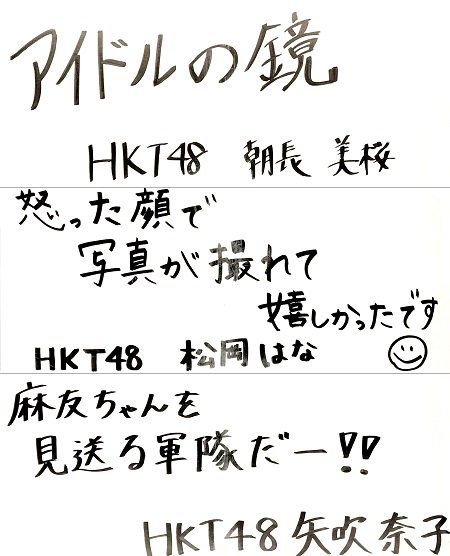 アイドルの鏡
HKT48 朝長 美桜
怒った顔で
写真が撮れて
嬉しかったです
HKT48 松岡はな
麻友ちゃんを
見送る軍隊だー!!
HKT48 矢吹奈子